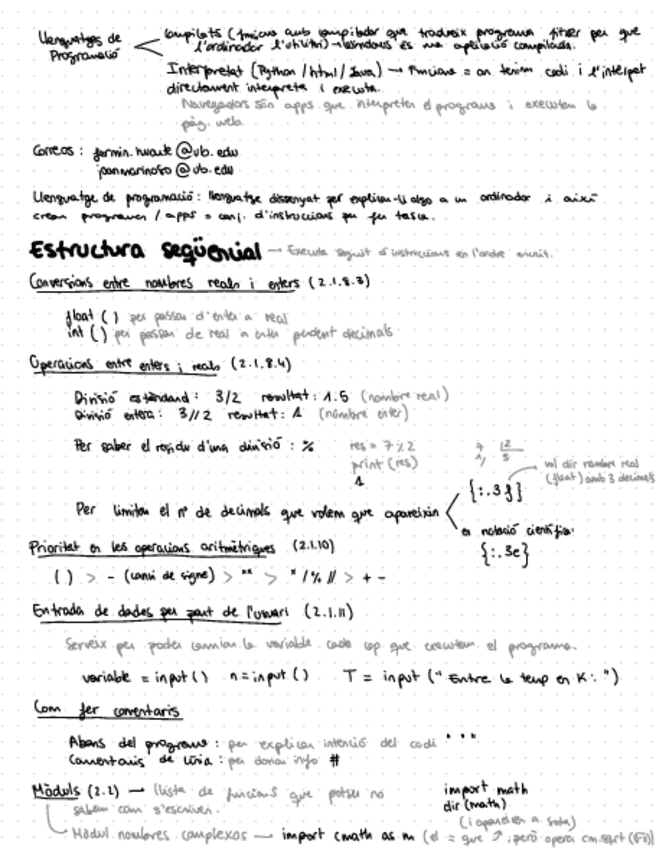 Llenguatges de Programació
Compilats (funciona amb compilador que tradueix programa fitxer per que
l'ordinador l'utilitzi) → Windows és una aplicació compilada.
Interpretat (Python / html / Java) → Funciona = on tenim codi i l'intèrpret
directament interpreta i executa.
Navegadors són apps que interpreten el programa i executen la
pàg. web
Correos : fermin.huarte @ub.edu
@ub.edu
Llenguatge de programació : llenguatge dissenyat per explicar-li algo a un ordinador i així
crear programes / apps = conj. d'instruccions per fer tasca.
Estructura seqüencial — Executa seguit d'instruccions en l'ordre escrit.
Conversions entre nombres reals i enters (2.1.8.3)
float ( ) per passar d'enter a real
int ( ) per passar de real a enter perdent decimals
Operacions entre enters i reals (2.1.8.4)
Divisió estàndard : 3/2 resultat : 1.5 (nombre real)
Divisió entera : 3//2 resultat : 1 (nombre enter)
Per saber el residu d'una divisió : %
res = 7%2
print (res)
1
7 |2
1/ 3
Per limitar el nº de decimals que volem que apareixin
{:.3f}
vol dir nombre real
(float) amb 3 decimals
en notació científica:
{:.3e}
Prioritat en les operacions aritmètriques (2.1.10)
( ) > - (canvi de signe) > ** > * / % // > + -
Entrada de dades per part de l'usuari (2.1.11)
Serveix per poder canviar la variable cada cop que executem el programa.
variable = input ( ) n = input ( ) T = input (" Entre la temp en K : ")
Com fer comentaris
Abans del programa : per explicar intenció del codi " " "
Comentaris de línia : per donar info #
Mòduls (2.2) → llista de funcions que potser no
sabem com s'escriuen.
import math
dir (math)
(i apareixen a sota)
Mòdul nombres complexos — import cmath as m (el = que ↗, però opera cm.sqrt